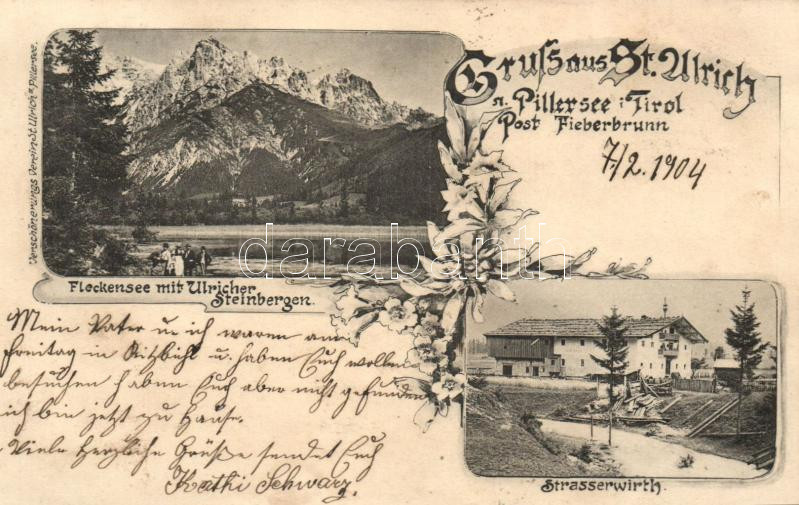 Gruß aus St. Ulrich
a. Pillersee i. Tirol
Post Fieberbrunn
7/2. 1904
Verschönerungs Verein St. Ulrich a. Pillersee.
darabanth
Fleckensee mit Ulricher
Steinbergen.
Mein Vater u. ich waren am
Freitag in Kitzbühl u. haben Euch wollen
besuchen haben Euch aber nicht gefunden
ich bin jetzt zu Hause.
Viele herzliche Grüße sendet Euch
Kathi Schwarz.
Strasserwirth.